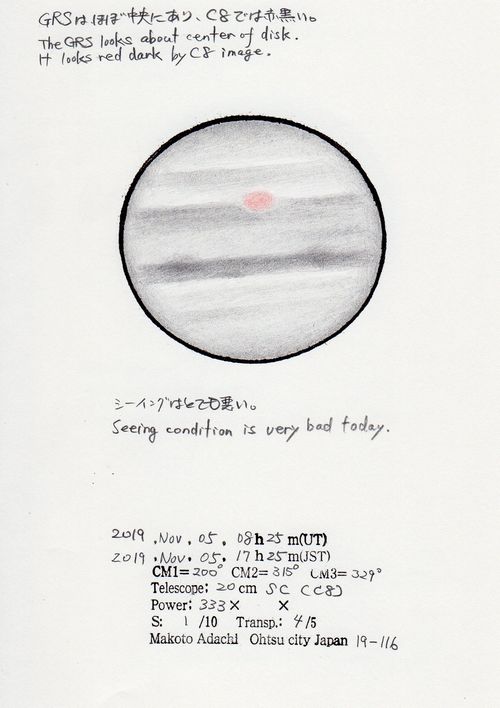 GRSはほぼ中央にあり、C8では赤黒い。
The GRS looks about center of disk.
It looks red dark by C8 image.
シーイングはとても悪い。
Seeing condition is very bad today.
2019 .Nov. 05. 08h25m(UT)
2019 .Nov. 05. 17h25m(JST)
CM1=200° CM2=315° CM3=329°
Telescope: 20cm SC (C8)
Power: 333× ×
S: 1 /10 Transp.: 4/5
Makoto Adachi Ohtsu city Japan 19-116